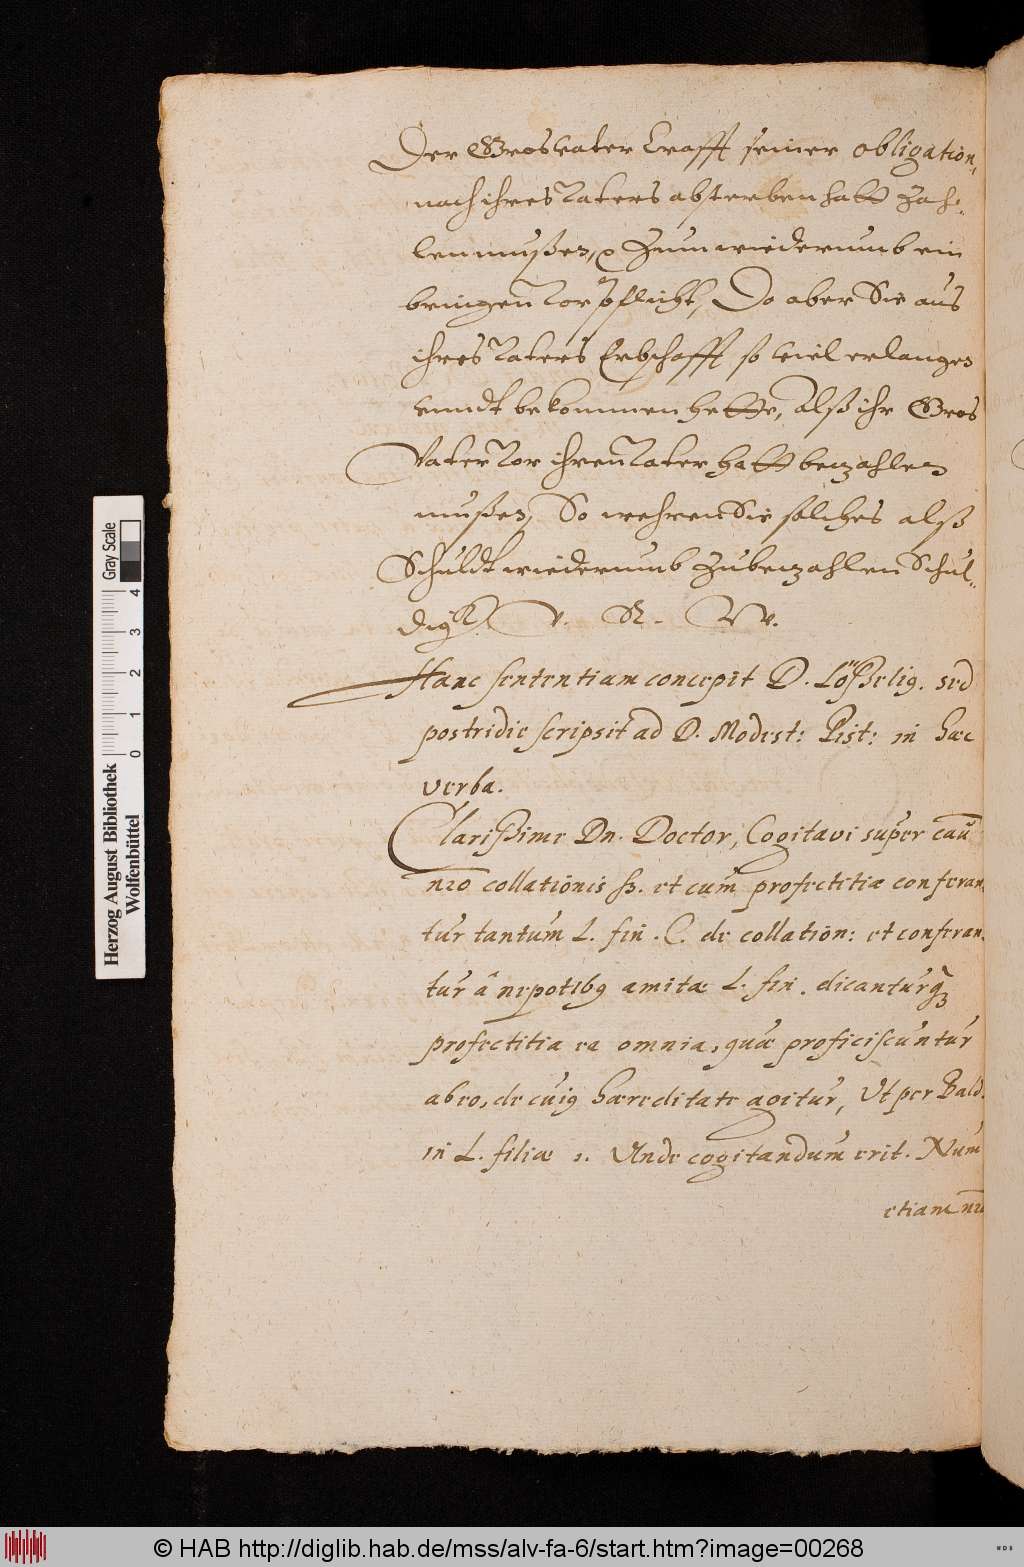 Der Grosvater Crafft seiner obligation,
nach ihres Vaters absterben hatt Zah-
len mußen, Zum wiederumb ein
bringen vorpflicht, Do aber Sie aus
ihres Vaters Erbschafft so viel erlanget
vnndt bekommen hette, Alß ihr Gros
Vater vor ihren Vater hatt bezahlen
mußen, So wehren Sie solches alß
Schuldt wiederumb Zubezahlen Schul-
digk. V. R. W.
Hanc sententiam concepit D. Lößelig. sed
postridie scripsit ad D. Modest: Pist: in hæc
verba.
Clarißime Dn. Doctor, Cogitavi super cau
nēo collationis ß. et cum profectitiæ conferan,
tur tantum L. fin. C. de collation: et conferan,
tur â nepotibꝯ amitæ L. fin. dicanturqꝫ
profectitia ea omnia, quæ proficiscuntur
ab eo, de cuiꝯ hæreditate agitur, Ut per Bald.
in L. filiæ 1. Unde cogitandum erit. Num
etiam
Herzog August Bibliothek
Wolfenbüttel
Gray Scale
0 1 2 3 4
© HAB http://diglib.hab.de/mss/alv-fa-6/start.htm?image=00268